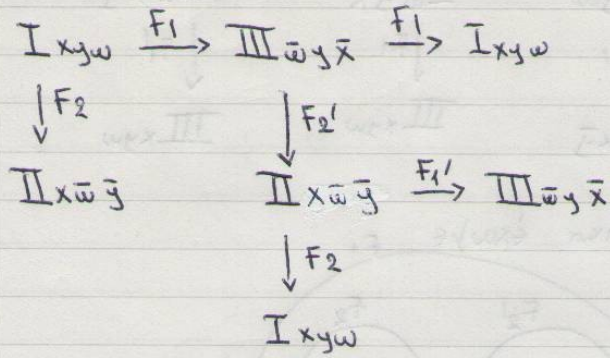 I xyw F1 → III w̄ y x̄ F1 → I xyw
↓ F2 ↓ F2'
II x w̄ ȳ II x w̄ ȳ F1' → III w̄ y x̄
↓ F2
I xyw